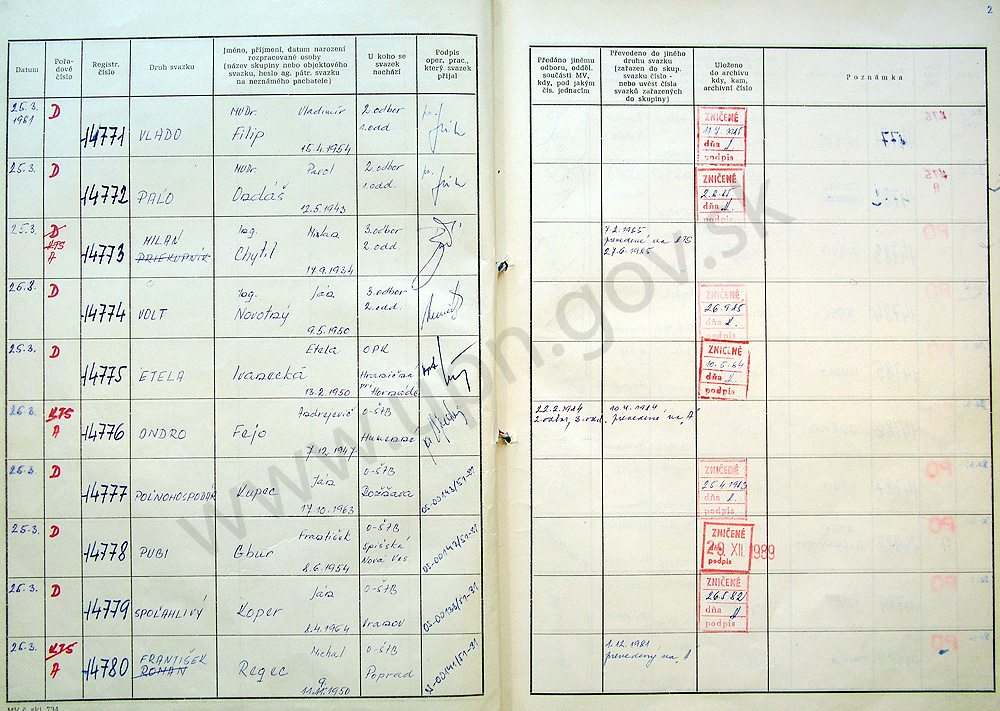 2
Datum
Pořadové číslo
Registr. číslo
Druh svazku
Jméno, příjmení, datum narození rozpracované osoby (název skupiny nebo objektového svazku, heslo ag. pátr. svazku na neznámého pachatele)
U koho se svazek nachází
Podpis oper. prac., který svazek přijal
Předáno jinému odboru, odděl. součásti MV, kdy, pod jakým čís. jednacím
Převedeno do jiného druhu svazku (zařazen do skup. svazku číslo - nebo uvést čísla svazků zařazených do skupiny)
Uloženo do archivu kdy, kam, archivní číslo
Poznámka
25.3. 1981 D 14771 VLADO MUDr. Vladimír Filip 15.4.1954 2.odbor 1.odd.
ZNIČENÉ dňa podpis
25.3. D 14772 PALO MUDr. Pavol Ondáš 12.5.1943 2.odbor 1.odd.
ZNIČENÉ 2.2.85 dňa podpis
25.3. D KTS A 14773 MILAN PRIEKUPNÍK Ing. Chytil 17.9.1934 3.odbor 2.odd.
7.2.1985 prevedené na KTS 27.6.1985
25.3. D 14774 VOLT Ing. Ján Novotný 9.5.1950 3.odbor 2.odd.
ZNIČENÉ 26.9.85 dňa podpis
25.3. D 14775 ETELA Etela Ivanecká 13.2.1950 OPK
ZNIČENÉ 10.5.84 dňa podpis
25.3. KTS A 14776 ONDRO Andrejevič Fejo 7.12.1947 O-ŠTB Humenné
22.2.1984 2.odbor, 3.odd. 10.4.1984 prevedené na A
25.3. D 14777 POĽNOHOSPODÁR Ján Kupec 17.10.1963 O-ŠTB Rožňava
ZNIČENÉ 25.4.1983 dňa podpis
25.3. D 14778 PUBI František Gbur 2.6.1954 O-ŠTB Spišská Nová Ves
ZNIČENÉ 29 XII 1989 podpis
25.3. D 14779 SPOĽAHLIVÝ Ján Koper 2.4.1964 O-ŠTB Vranov
ZNIČENÉ 26.5.82 dňa podpis
25.3. KTS A 14780 FRANTIŠEK ROMAN Michal Regec O-ŠTB Poprad
1.12.1981 prevedený na
www.upn.gov.sk